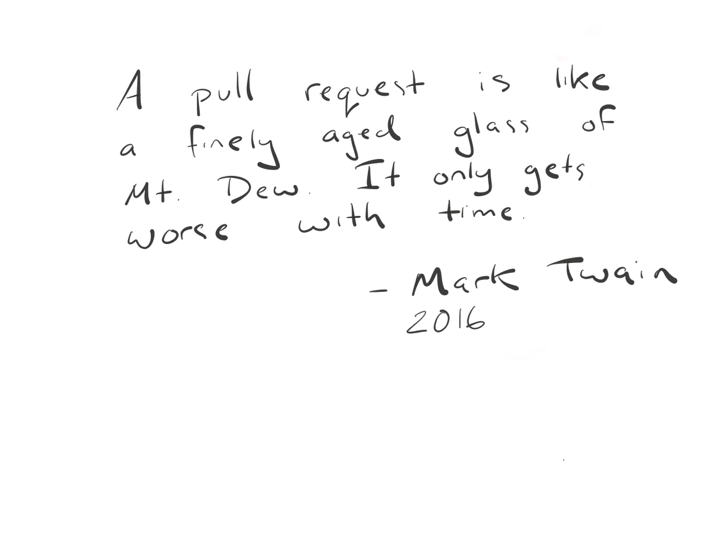 A pull request is like
a finely aged glass of
Mt. Dew. It only gets
worse with time.
- Mark Twain
2016